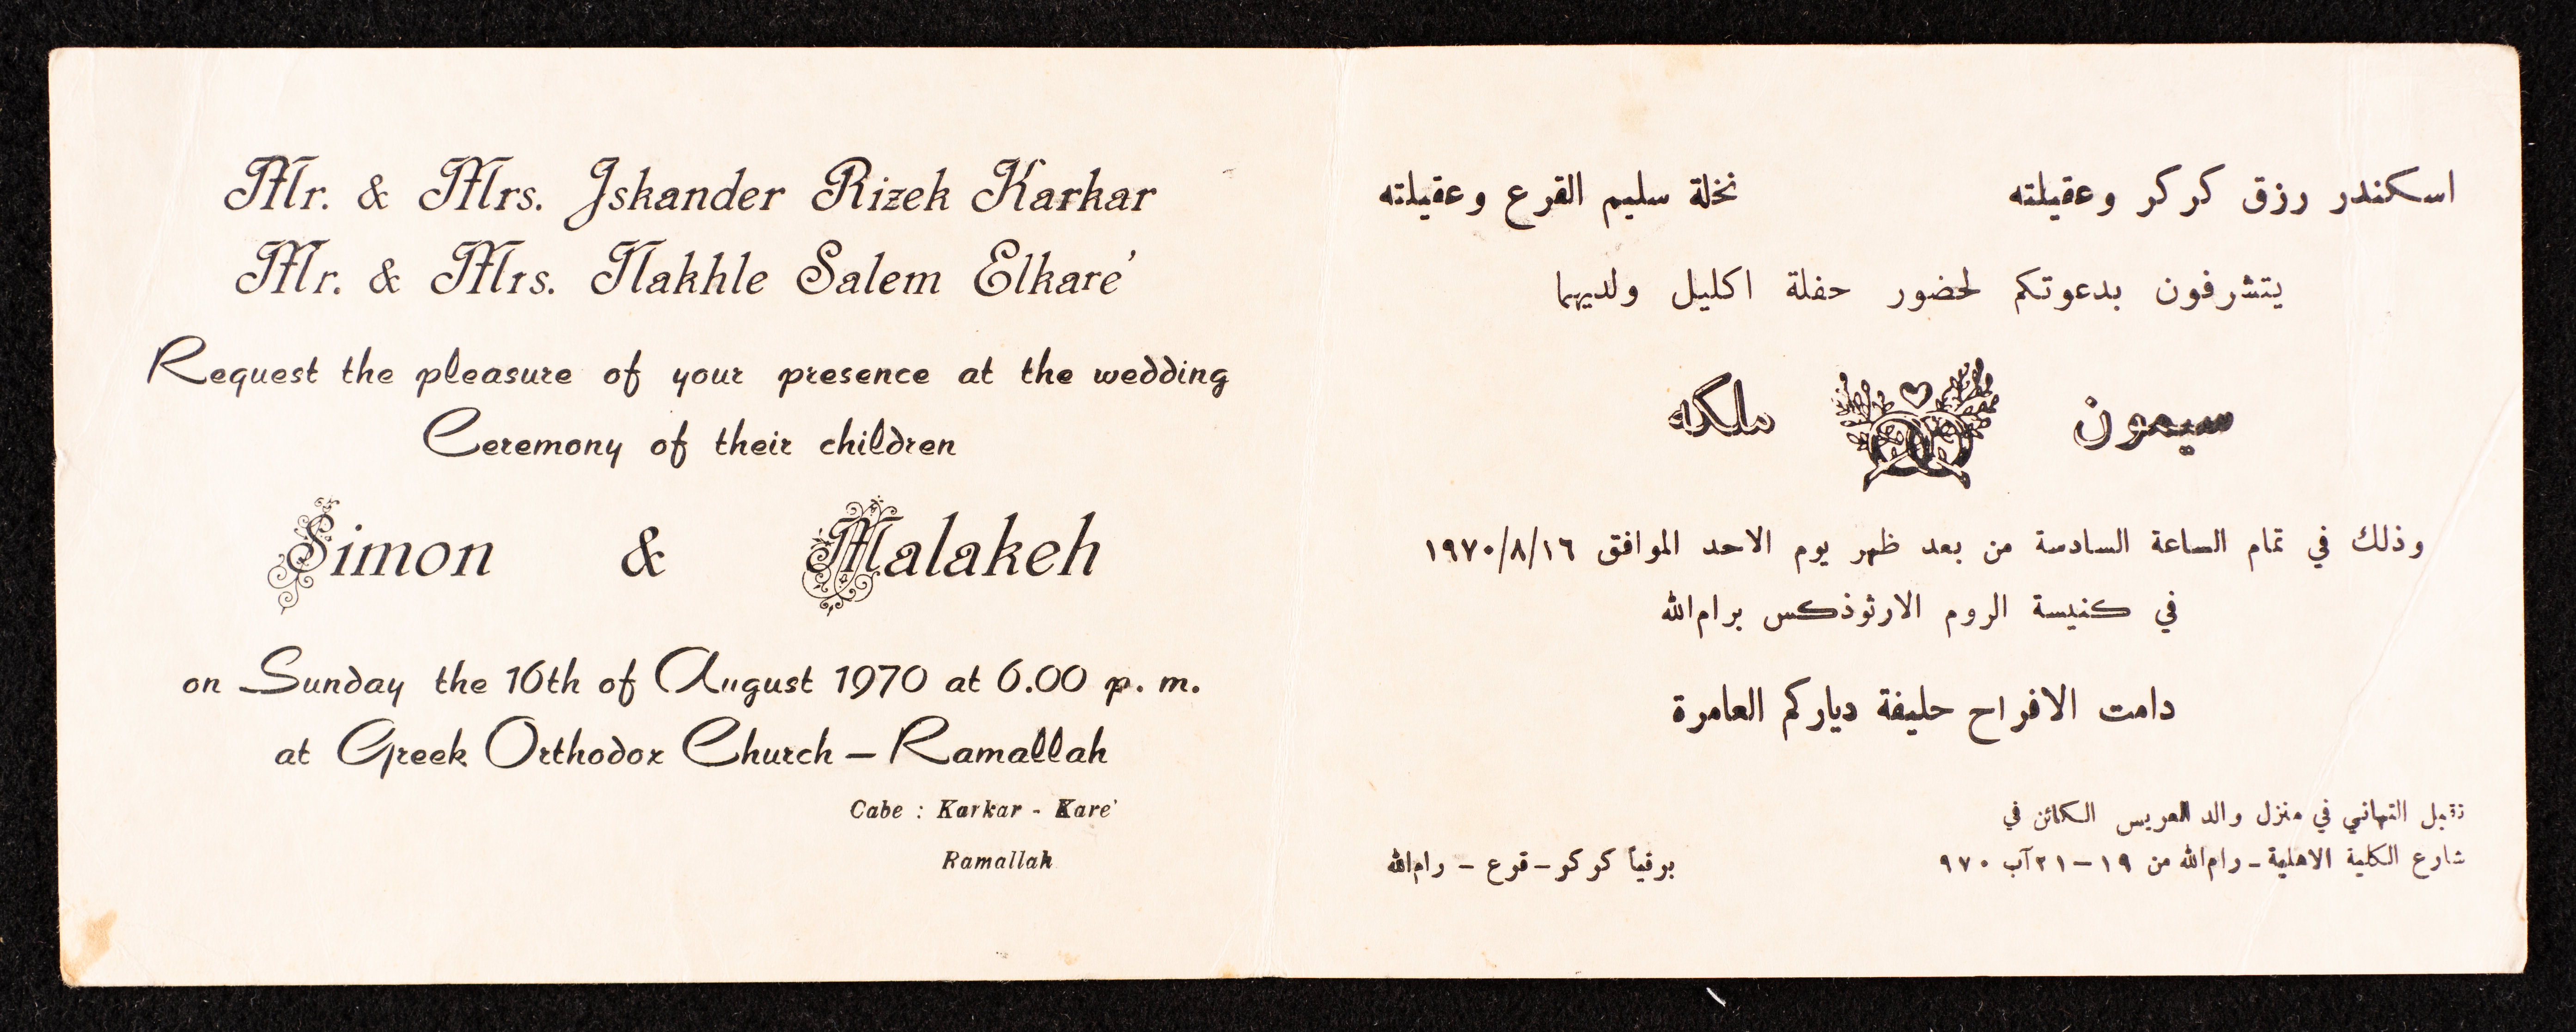 Mr. & Mrs. Iskander Rizek Karkar
Mr. & Mrs. Nakhle Salem Elkare'
Request the pleasure of your presence at the wedding
Ceremony of their children
Simon & Malakeh
on Sunday the 16th of August 1970 at 6.00 p. m.
at Greek Orthodox Church – Ramallah
Cabe : Karkar - Kare'
Ramallah
اسكندر رزق كركر وعقيلته نخلة سليم القرع وعقيلته
يتشرفون بدعوتكم لحضور حفلة اكليل ولديهما
سيمون ملكه
وذلك في تمام الساعة السادسة من بعد ظهر يوم الاحد الموافق ١٩٧٠/٨/١٦
في كنيسة الروم الارثوذكس برام الله
دامت الافراح حليفة دياركم العامرة
تقبل التهاني في منزل والد العريس الكائن في
شارع الكلية الاهلية – رام الله من ١٩ – ٢١ آب ٩٧٠
برقياً كركر – قرع – رام الله